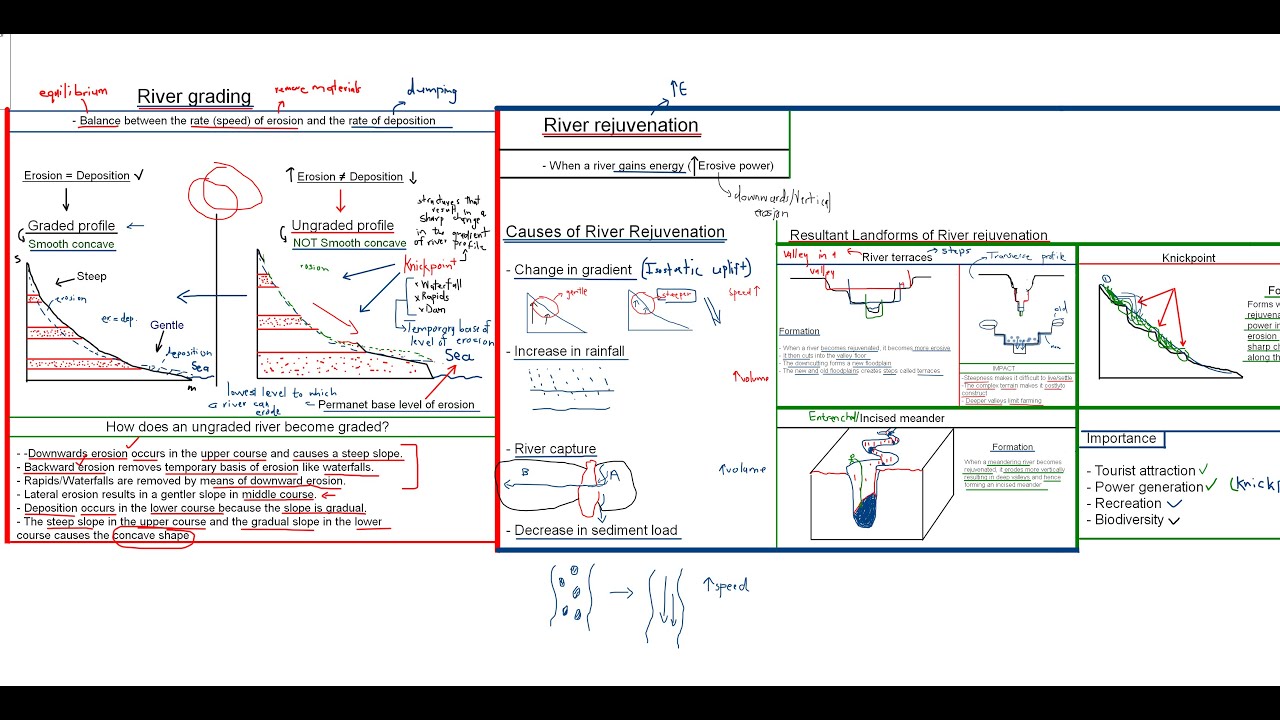 equilibrium
River grading
remove materials
dumping
- Balance between the rate (speed) of erosion and the rate of deposition
Erosion = Deposition
Graded profile
Smooth concave
S
Steep
erosion
er = dep.
Gentle
deposition
Sea
m
↑ Erosion ≠ Deposition ↓
Ungraded profile
NOT Smooth concave
structures that
result in a
sharp change
in the gradient
of river profile
erosion
Knickpoint
x Waterfall
x Rapids
x Dam
Temporary base of
level of erosion
Sea
lowest level to which
a river can
erode
Permanet base level of erosion
How does an ungraded river become graded?
- -Downwards erosion occurs in the upper course and causes a steep slope.
- Backward erosion removes temporary basis of erosion like waterfalls.
- Rapids/Waterfalls are removed by means of downward erosion.
- Lateral erosion results in a gentler slope in middle course.
- Deposition occurs in the lower course because the slope is gradual.
- The steep slope in the upper course and the gradual slope in the lower
course causes the concave shape
↑E
River rejuvenation
- When a river gains energy (↑Erosive power)
downwards/Vertical
erosion
Causes of River Rejuvenation
- Change in gradient (Isostatic uplift)
gentle
steeper
speed ↑
- Increase in rainfall
↑volume
- River capture
B
A
↑volume
- Decrease in sediment load
↑speed
Resultant Landforms of River rejuvenation
valley in a
valley
River terraces
steps
Transverse profile
old
Formation
- When a river becomes rejuvenated, it becomes more erosive
- it then cuts into the valley floor
- The downcutting forms a new floodplain
- The new and old floodplains creates steps called terraces
IMPACT
-Steepness makes it difficult to live/settle
-The complex terrain makes it costly to
construct
- Deeper valleys limit farming
Knickpoint
Fo
Forms w
rejuvena
power in
erosion
sharp ch
along th
Entrenched/Incised meander
Formation
When a meandering river becomes
rejuvenated, it erodes more vertically
resulting in deep valleys and hence
forming an incised meander
Importance
- Tourist attraction
- Power generation
(Knickp
- Recreation
- Biodiversity